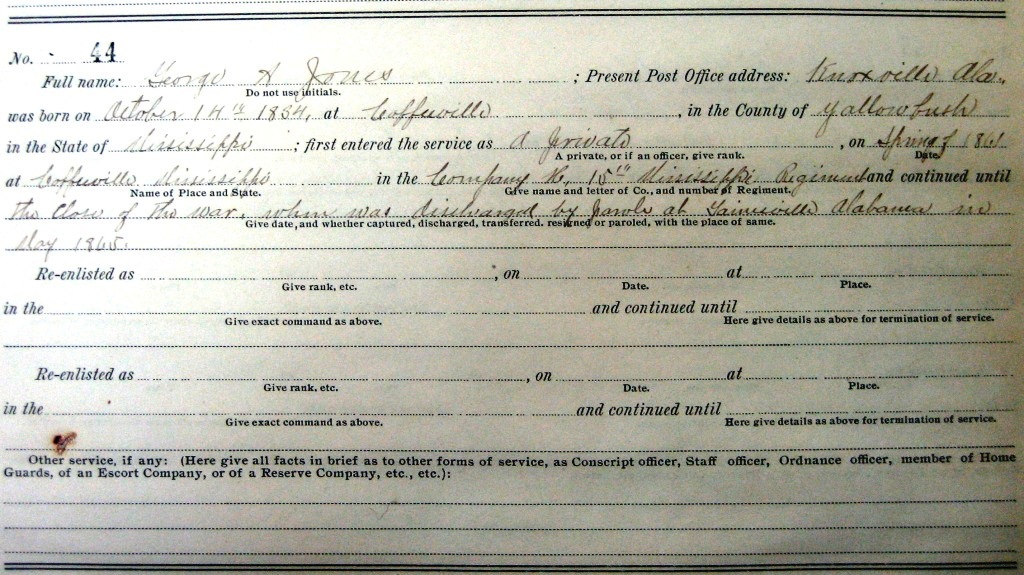 No. 44
Full name: George A Jones ; Present Post Office address: Knoxville Ala.,
Do not use initials.
was born on October 14th 1834, at Coffeeville , in the County of Yallowbush
in the State of Mississippi ; first entered the service as A Private , on Spring of 1861
A private, or if an officer, give rank. Date.
at Coffeeville Mississippi in the Company H, 15th Mississippi Regiment and continued until
Name of Place and State. Give name and letter of Co., and number of Regiment.
the Close of the war, when was discharged by Parole at Gainesville Alabama in
Give date, and whether captured, discharged, transferred, resigned or paroled, with the place of same.
May 1865.
Re-enlisted as , on at
Give rank, etc. Date. Place.
in the and continued until
Give exact command as above. Here give details as above for termination of service.
Re-enlisted as , on at
Give rank, etc. Date. Place.
in the and continued until
Give exact command as above. Here give details as above for termination of service.
Other service, if any: (Here give all facts in brief as to other forms of service, as Conscript officer, Staff officer, Ordnance officer, member of Home
Guards, of an Escort Company, or of a Reserve Company, etc., etc.):